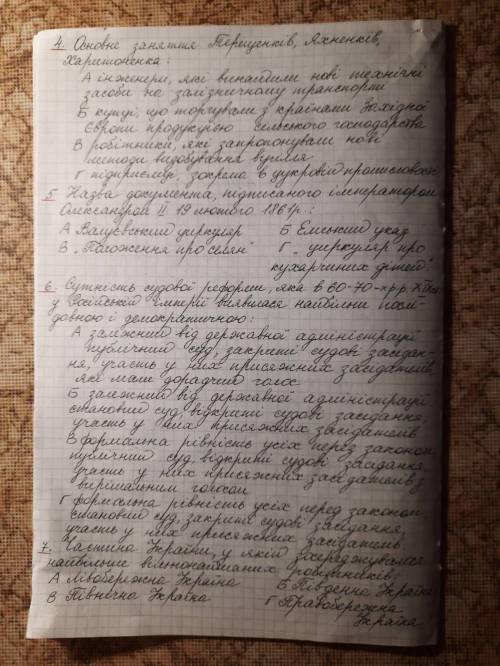 4. Основне заняття Терещенків, Яхненків,
Харитоненка:
А інженери, які винайшли нові технічні
засоби на залізничному транспорті
Б купці, що торгували з країнами Західної
Європи продукцією сільського господарства
В робітники, які запропонували нові
методи видобування вугілля
Г підприємці, зокрема в цукровій промисловості
5. Назва документа, підписаного імператором
Олександром ІІ 19 лютого 1861р.:
А Валуєвський циркуляр
Б Емський указ
В „Положення про селян"
Г „циркуляр про
кухарчиних дітей"
6. Сутність судової реформи, яка в 60-70-х рр. ХІХст
у Російській імперії виявилася найбільш послі-
довною і демократичною:
А залежний від державної адміністрації
публічний суд, закриті судові засідан-
ня, участь у них присяжних засідателів,
які мали дорадчий голос
Б залежний від державної адміністрації
становий суд, відкриті судові засідання,
участь у них присяжних засідателів
В формальна рівність усіх перез законом,
публічний суд, відкриті судові засідання,
участь у них присяжних засідателів з
вирішальним голосом
Г формальна рівність усіх перед законом,
становий суд, закриті судові засідання,
участь у них присяжних засідателів
7. Частина України, у якій зосереджувалося
найбільше вільнонайманих робітників:
А Лівобережна Україна
Б Південна Україна
В Північна Україна
Г Правобережна
Україна